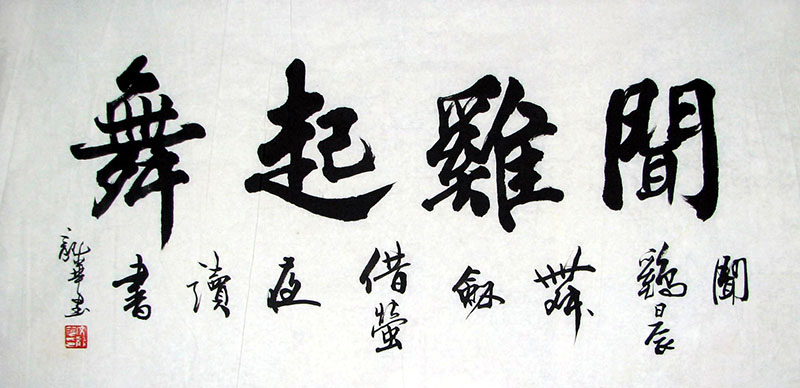 聞雞起舞
聞鷄晨舞劍借螢夜讀書
龍華書